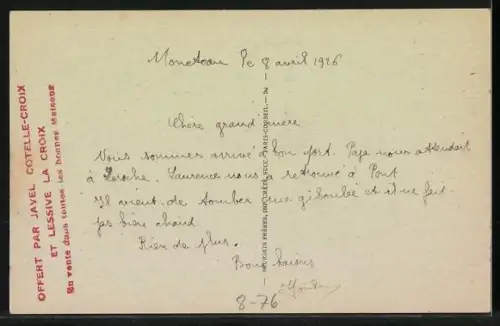 Moneteau le 8 avril 1926
Chère grand'mère
Nous sommes arrivé à bon port. Papa nous attendait
à Laroche. Laurence nous a retrouvé à Pont
Il vient de tomber une giboulée et il ne fait
pas bien chaud.
Rien de plus.
Bons baisers
8-76
OFFERT PAR JAVEL COTELLE-CROIX
ET LESSIVE LA CROIX
En vente dans toutes les bonnes Maisons
FRÈRES, IMPRIMEURS, PARIS-CORBEIL